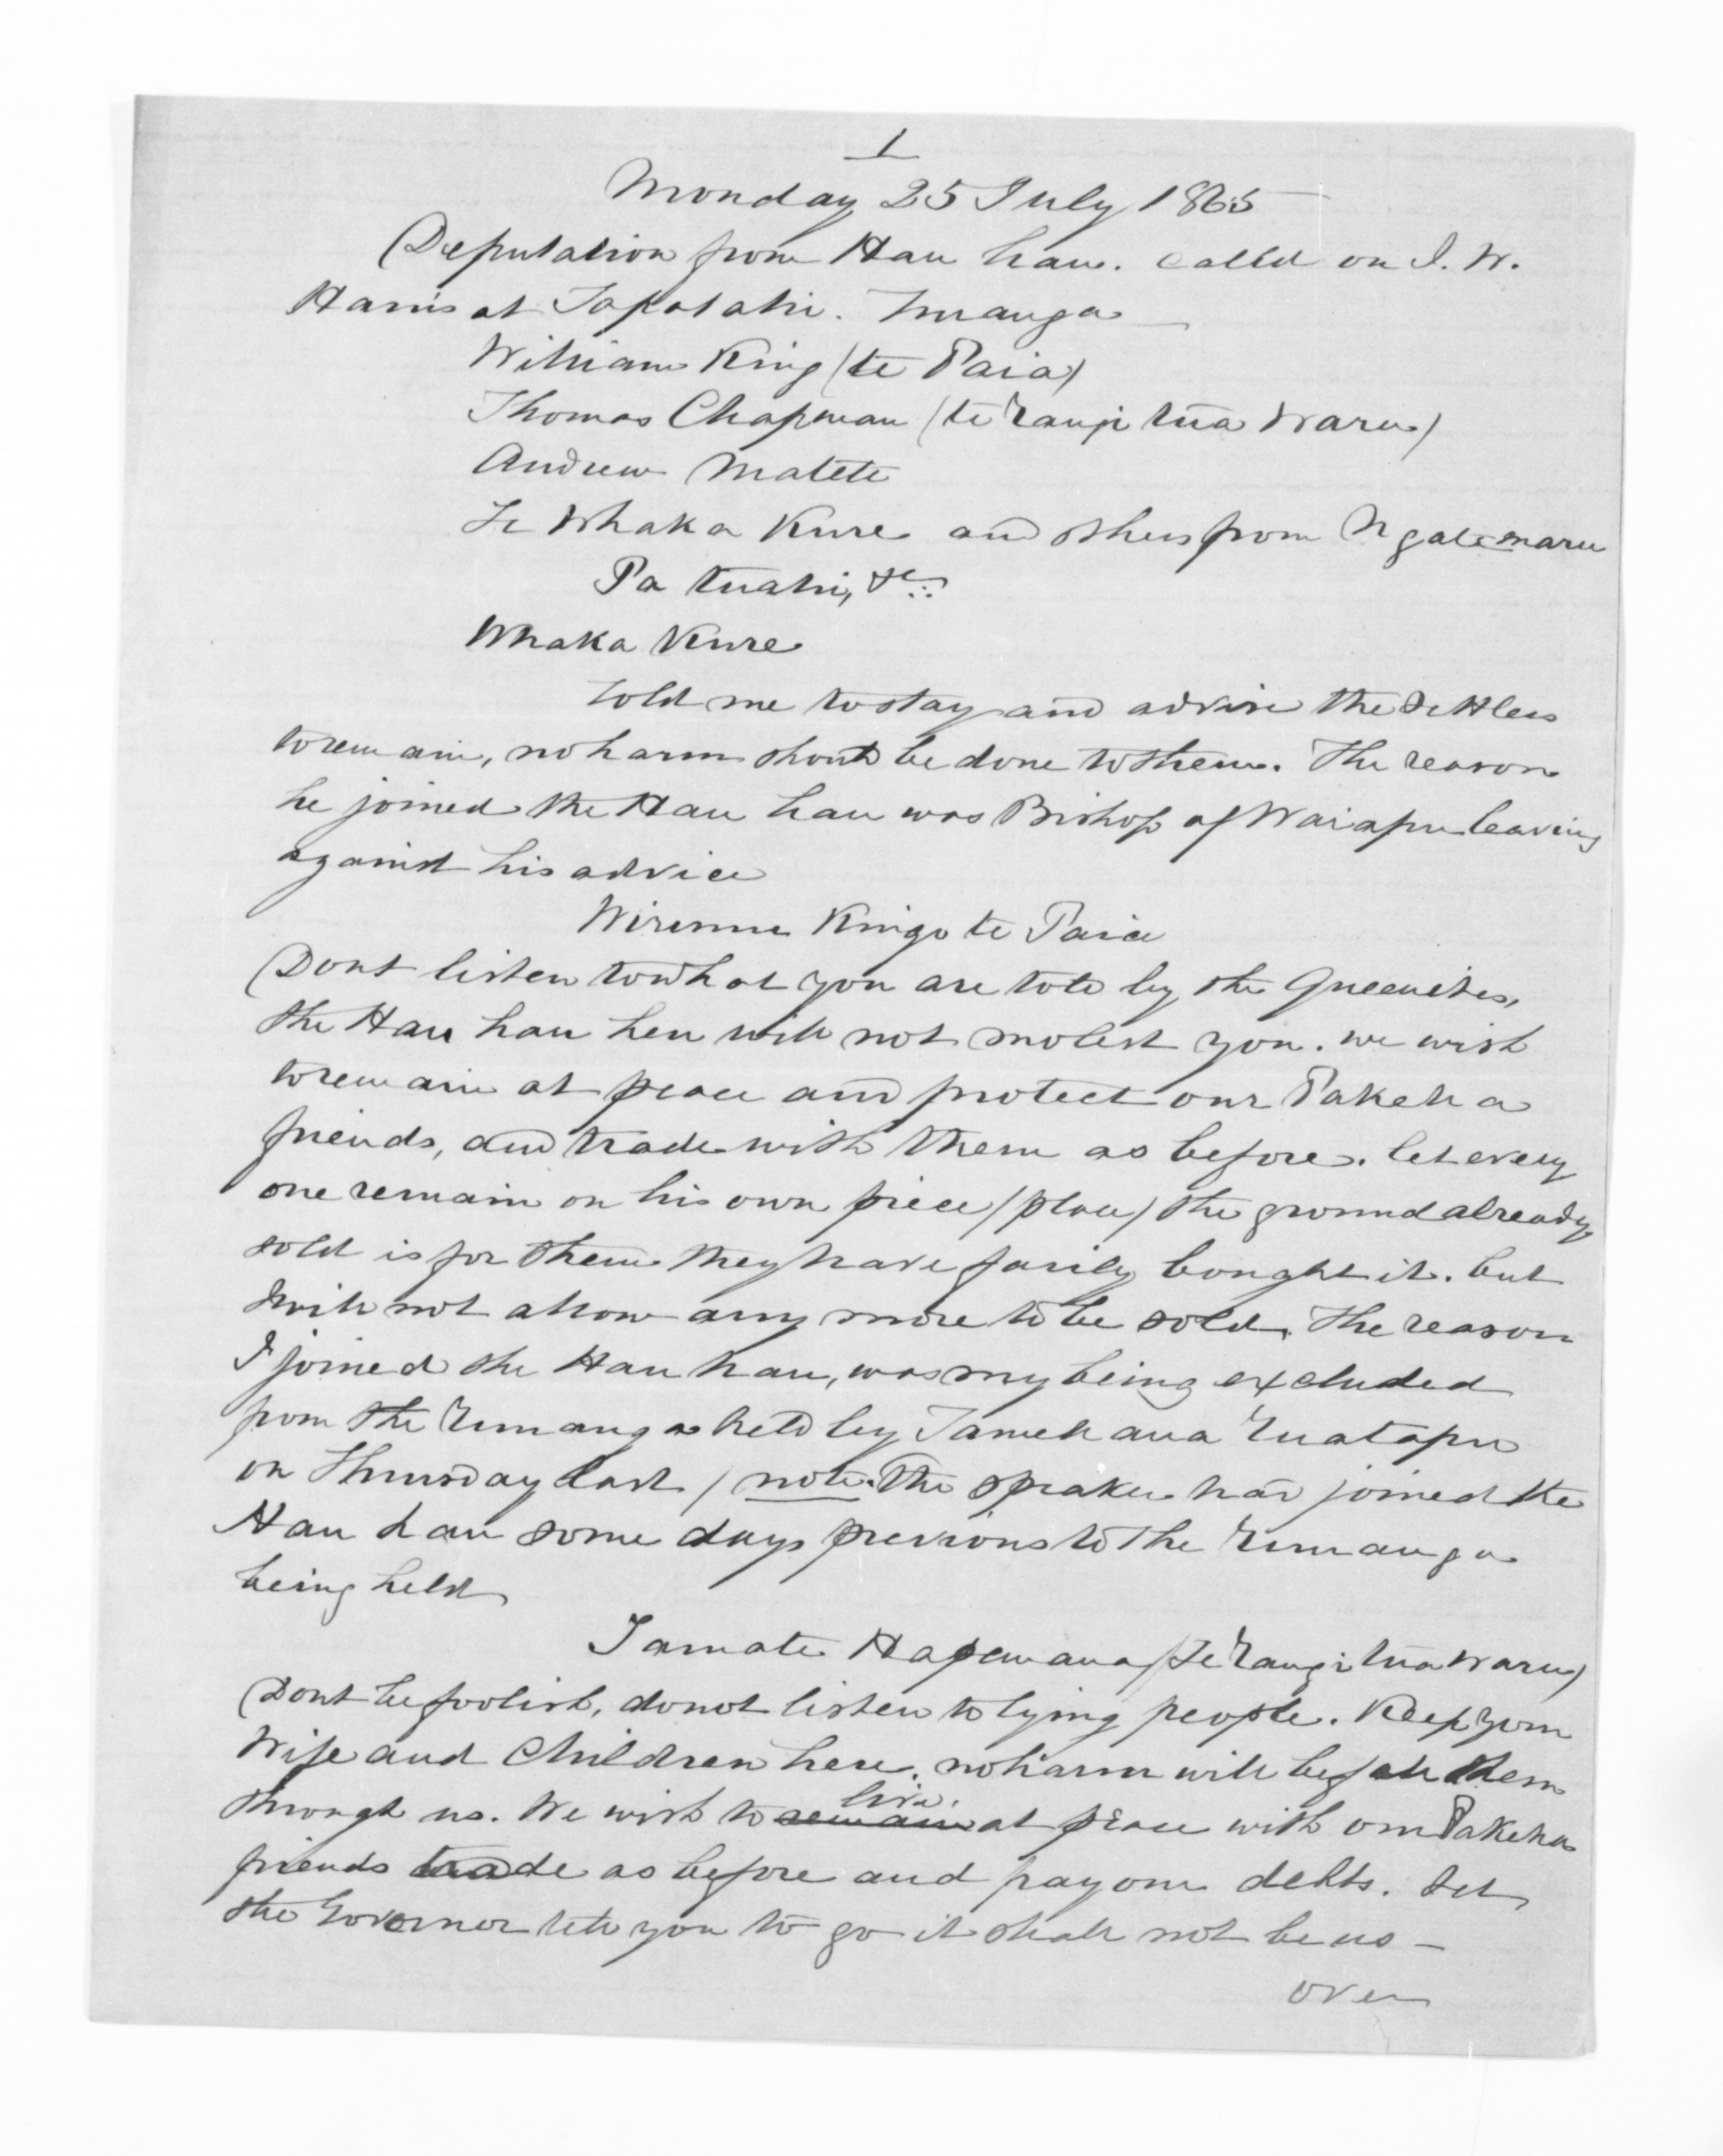 1
Monday 25 July 1865
Deputation from Hau hau. called on J. W.
Harris at Tapatahi. Turanga
William King (te Paia)
Thomas Chapman (te Rangi tua Waru)
Andrew Matete
Te Whaka Kure and others from Ngatemaru
Pa tuahi, &c
Whaka Kure
told me to stay and advise the settlers
to remain, no harm should be done to them. The reason
he joined the Hau hau was Bishop of Waiapu leaving
against his advice
Wiremu Kingo te Paia
Dont listen to what you are told by the Queenites,
the Hau hau hen will not molest you. we wish
to remain at peace and protect our Pakeha
friends, and trade with them as before. let every
one remain on his own piece (place) the ground already
sold is for them they have farily bought it. but
I will not allow any more to be sold. The reason
I joined the Hau hau, was my being excluded
from the runanga held by Tamehana Ruatapu
on Thursday last / note. The speaker had joined the
Hau hau some days previous to the runanga
being held
Tamate Hapemana (Te Rangi tua Waru)
Dont be foolish, do not listen to lying people. Keep your
Wife and Children here. no harm will befall them
through us. We wish to remain live. at peace with our Pakeha
friends trade as before and pay our debts. Let
the Governor tell you to go it shall not be us –
over